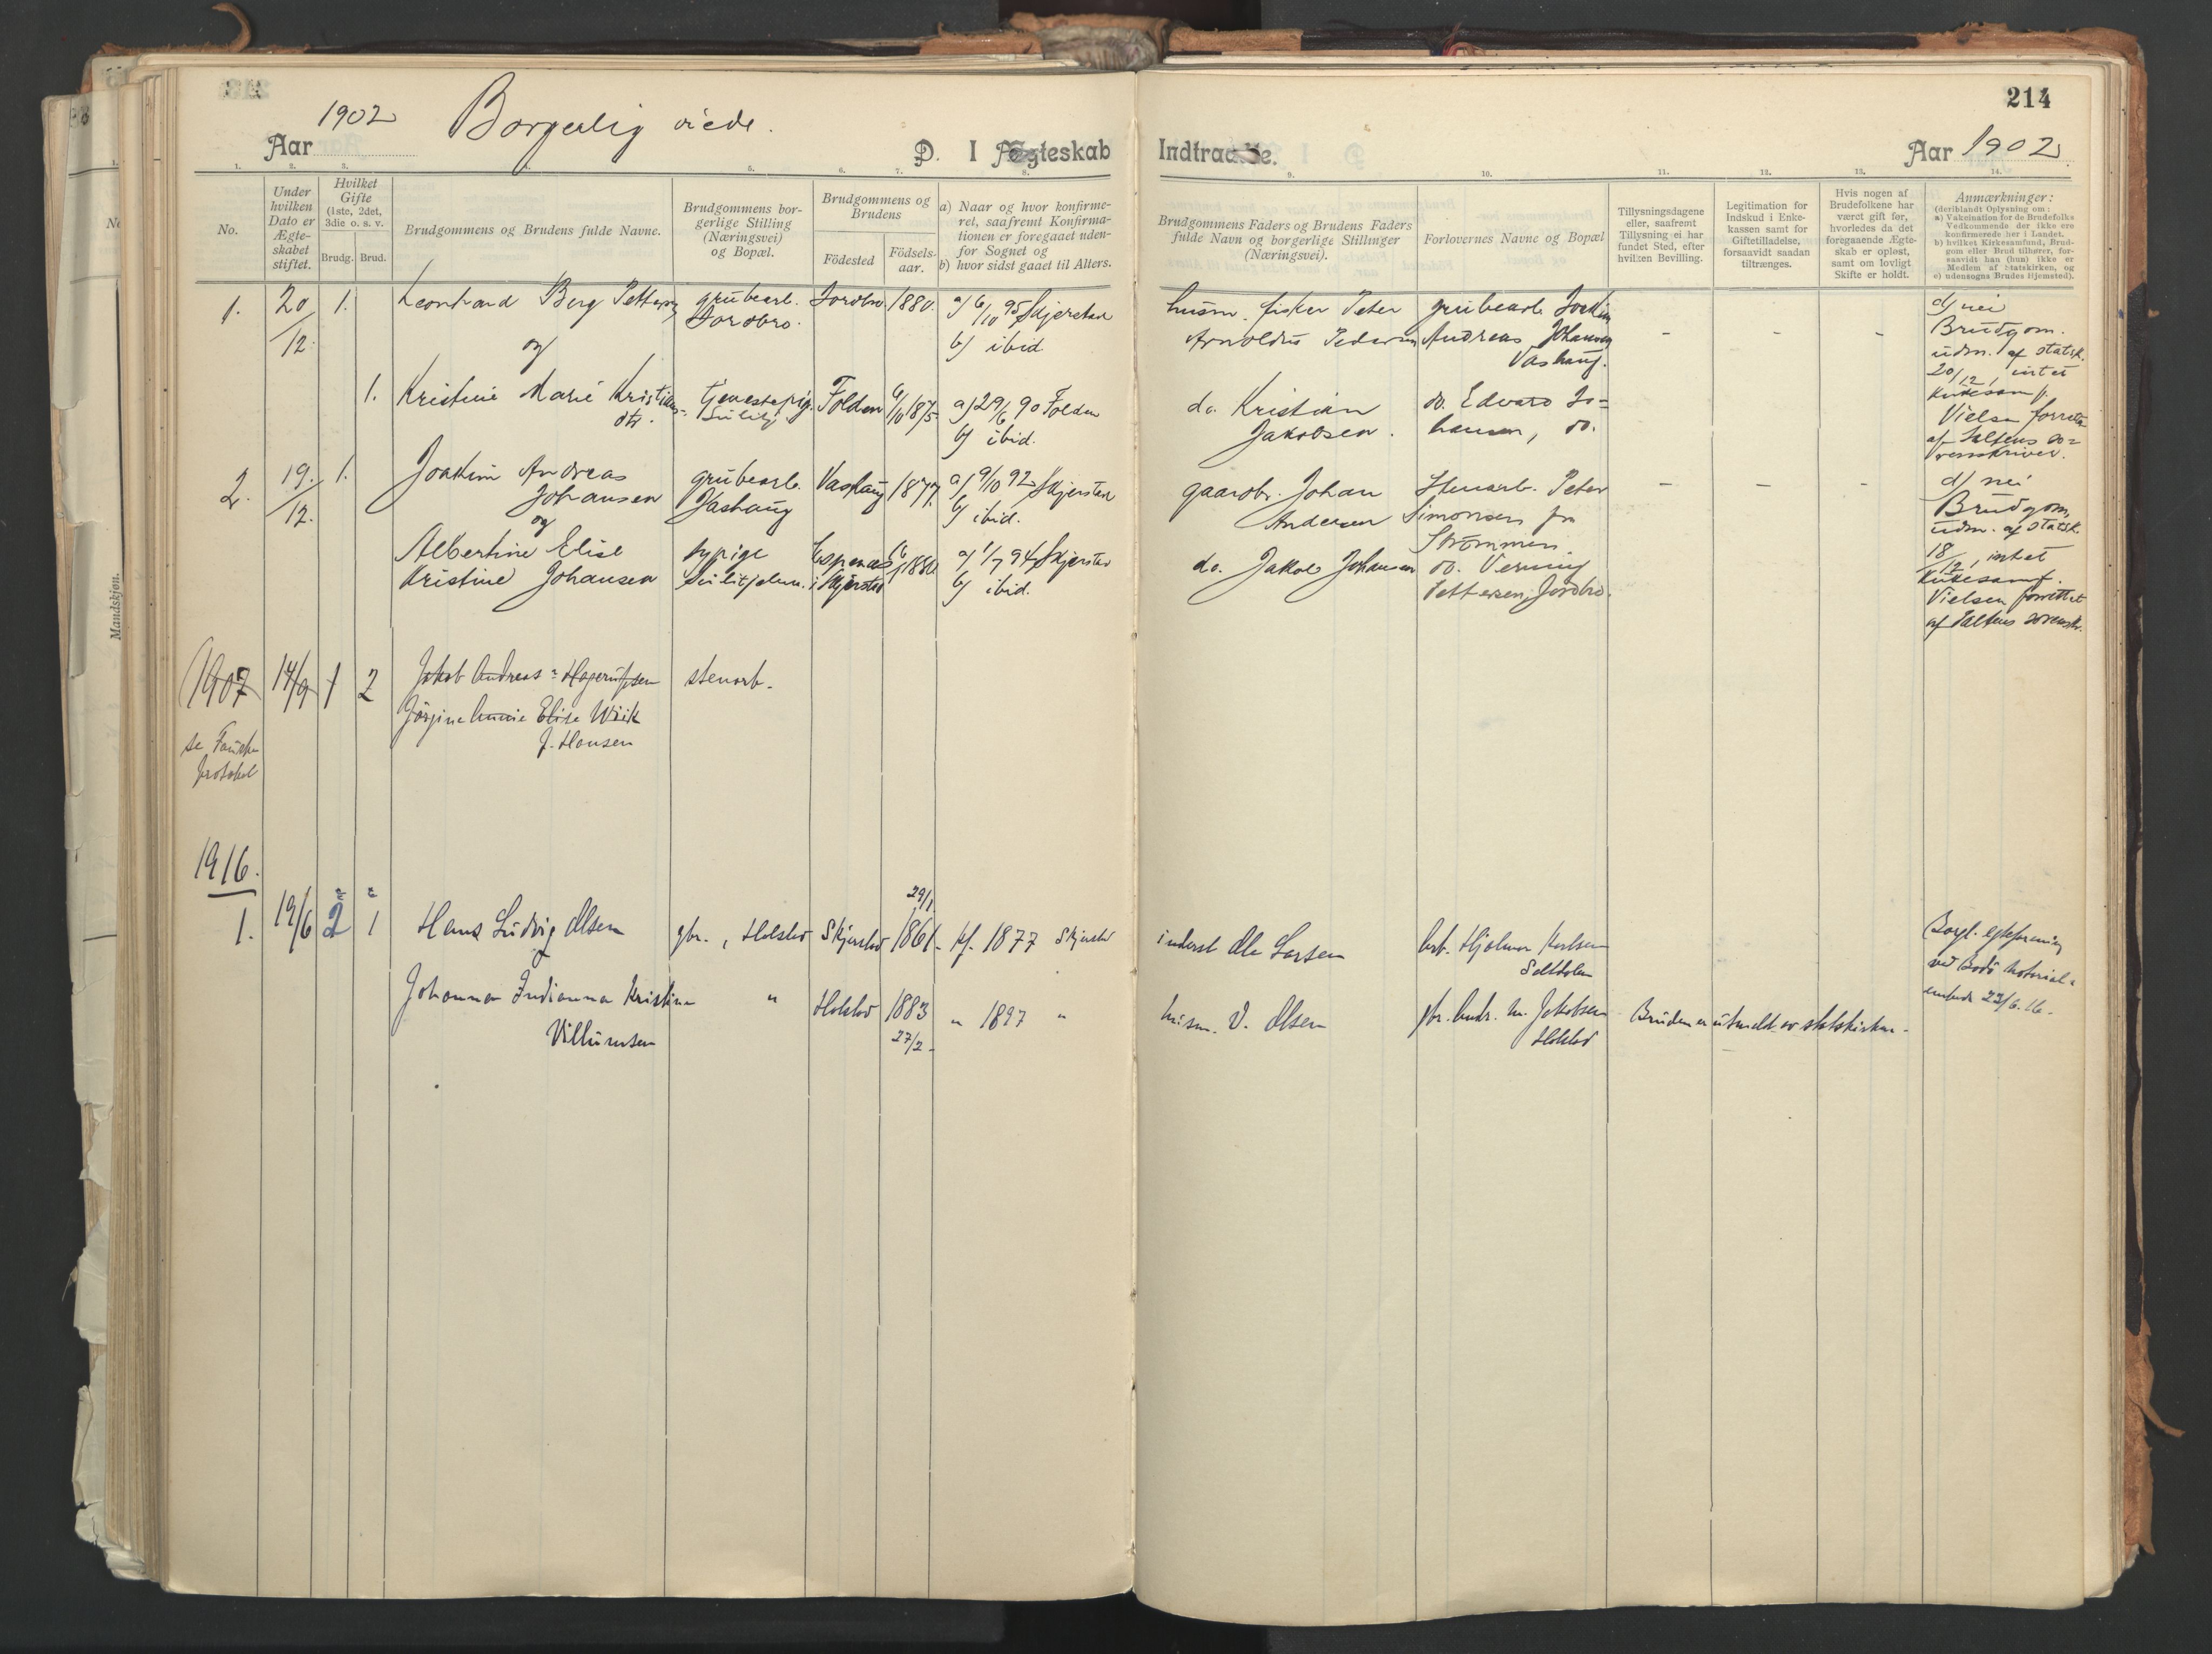 1902 Borgerlig viede.
Aar
D. I Ægteskab
1. 2. 3. 5. 6. 7. 8.
No.
Under hvilken Dato er Ægte-skabet stiftet.
Hvilket Gifte (1ste, 2det, 3die o. s. v.
Brudg. Brud.
Brudgommens og Brudens fulde Navne.
Brudgommens bor-
gerlige Stilling
(Næringsvei)
og Bopæl.
Brudgommens og
Brudens
Födested
Födsels-
aar.
a) Naar og hvor konfirme-
ret, saafremt Konfirma-
tionen er foregaaet uden-
for Sognet og
b) hvor sidst gaaet til Alters.
1. 20/12. 1. Leonhard Berg Pettersen
grubearb.
Jordbro.
Jordbro 1880.
a) 6/10 95 Skjerstad
b) ibid
og
1. Kristine Marie Kristians-
dtr.
tjenestepig.
Sulitj.
Folden 6/10 1875
a) 29/6 90 Folden
b) ibid.
2. 19./12. 1. Joakim Andreas
Johansen
grubearb.
Vashaug
Vashaug 1877.
a) 9/10 92 Skjerstad
b) ibid.
og
Albertine Elise
Kristine Johansen
sypige
Sulitjelma.
Espenes
i Skjerstad
1880
a) 1/7 94 Skjerstad
b) ibid.
1907 14/9 1 2 Jakob Andreas Hagerupsen stenarb.
Jörgine Annie Elise Wiik
f. Hansen
se Fauske
protokol
1916.
1. 19/6 2 1 Hans Ludvig Olsen gbr., Holstad Skjerstad 29/1 1861 kf. 1877 Skjerstad
Johanna Indianna Kristine
Villumsen
" Holstad 1883
27/2 " 1897 "
214
Indtraadte.
Aar 1902
9. 10. 11. 12. 13. 14.
Brudgommens Faders og Brudens Faders
fulde Navn og borgerlige Stillinger
(Næringsvei).
Forlovernes Navne og Bopæl
Tillysningsdagene
eller, saafremt
Tillysning ei har
fundet Sted, efter
hvilken Bevilling.
Legitimation for
Indskud i Enke-
kassen samt for
Giftetilladelse,
forsaavidt saadan
tiltrænges.
Hvis nogen af
Brudefolkene har
været gift før,
hvorledes da det
foregaaende Ægte-
skab er opløst,
samt om lovligt
Skifte er holdt.
Anmærkninger:
(deriblandt Oplysning om:
a) Vakcination for de Brudefolks
Vedkommende der ikke ere
konfirmerede her i Landet,
b) hvilket Kirkesamfund, Brud-
gom eller Brud tilhører, for-
saavidt han (hun) ikke er
Medlem af Statskirken, og
c) udensogns Brudes Hjemsted).
husm. fisker Peter
Arnoldus Pedersen
grubearb. Joakim
Andreas Johansen
Vashaug.
- - -
d) nei
Brudgom.
udm. af statsk.
20/12, intet
kirkesamf.
Vielsen forrettet
af Saltens so-
renskriver.
do. Kristian
Jakobsen.
do. Edvard Jo-
hansen, do.
gaardbr. Johan
Andersen
Stenarb. Peter
Simonsen fra
Strömmen.
- - -
d) nei
Brudgom,
udm. af statsk.
18/12, intet
kirkesamf.
Vielsen forrettet
af Saltens sorenskr.
do. Jakob Johansen
do. Verning
Pettersen, Jordbro.
inderst Ole Larsen
arb. Hjalmar Karlsen
Saltdalen
Borgl. egteforening
ved Bodö Notorial-
embede 22/6.16.
husm. V. Olsen
gbr. Andr. M. Jakobsen
Holstad
Bruden er utmeldt av statskirken.
Mandskjøn.